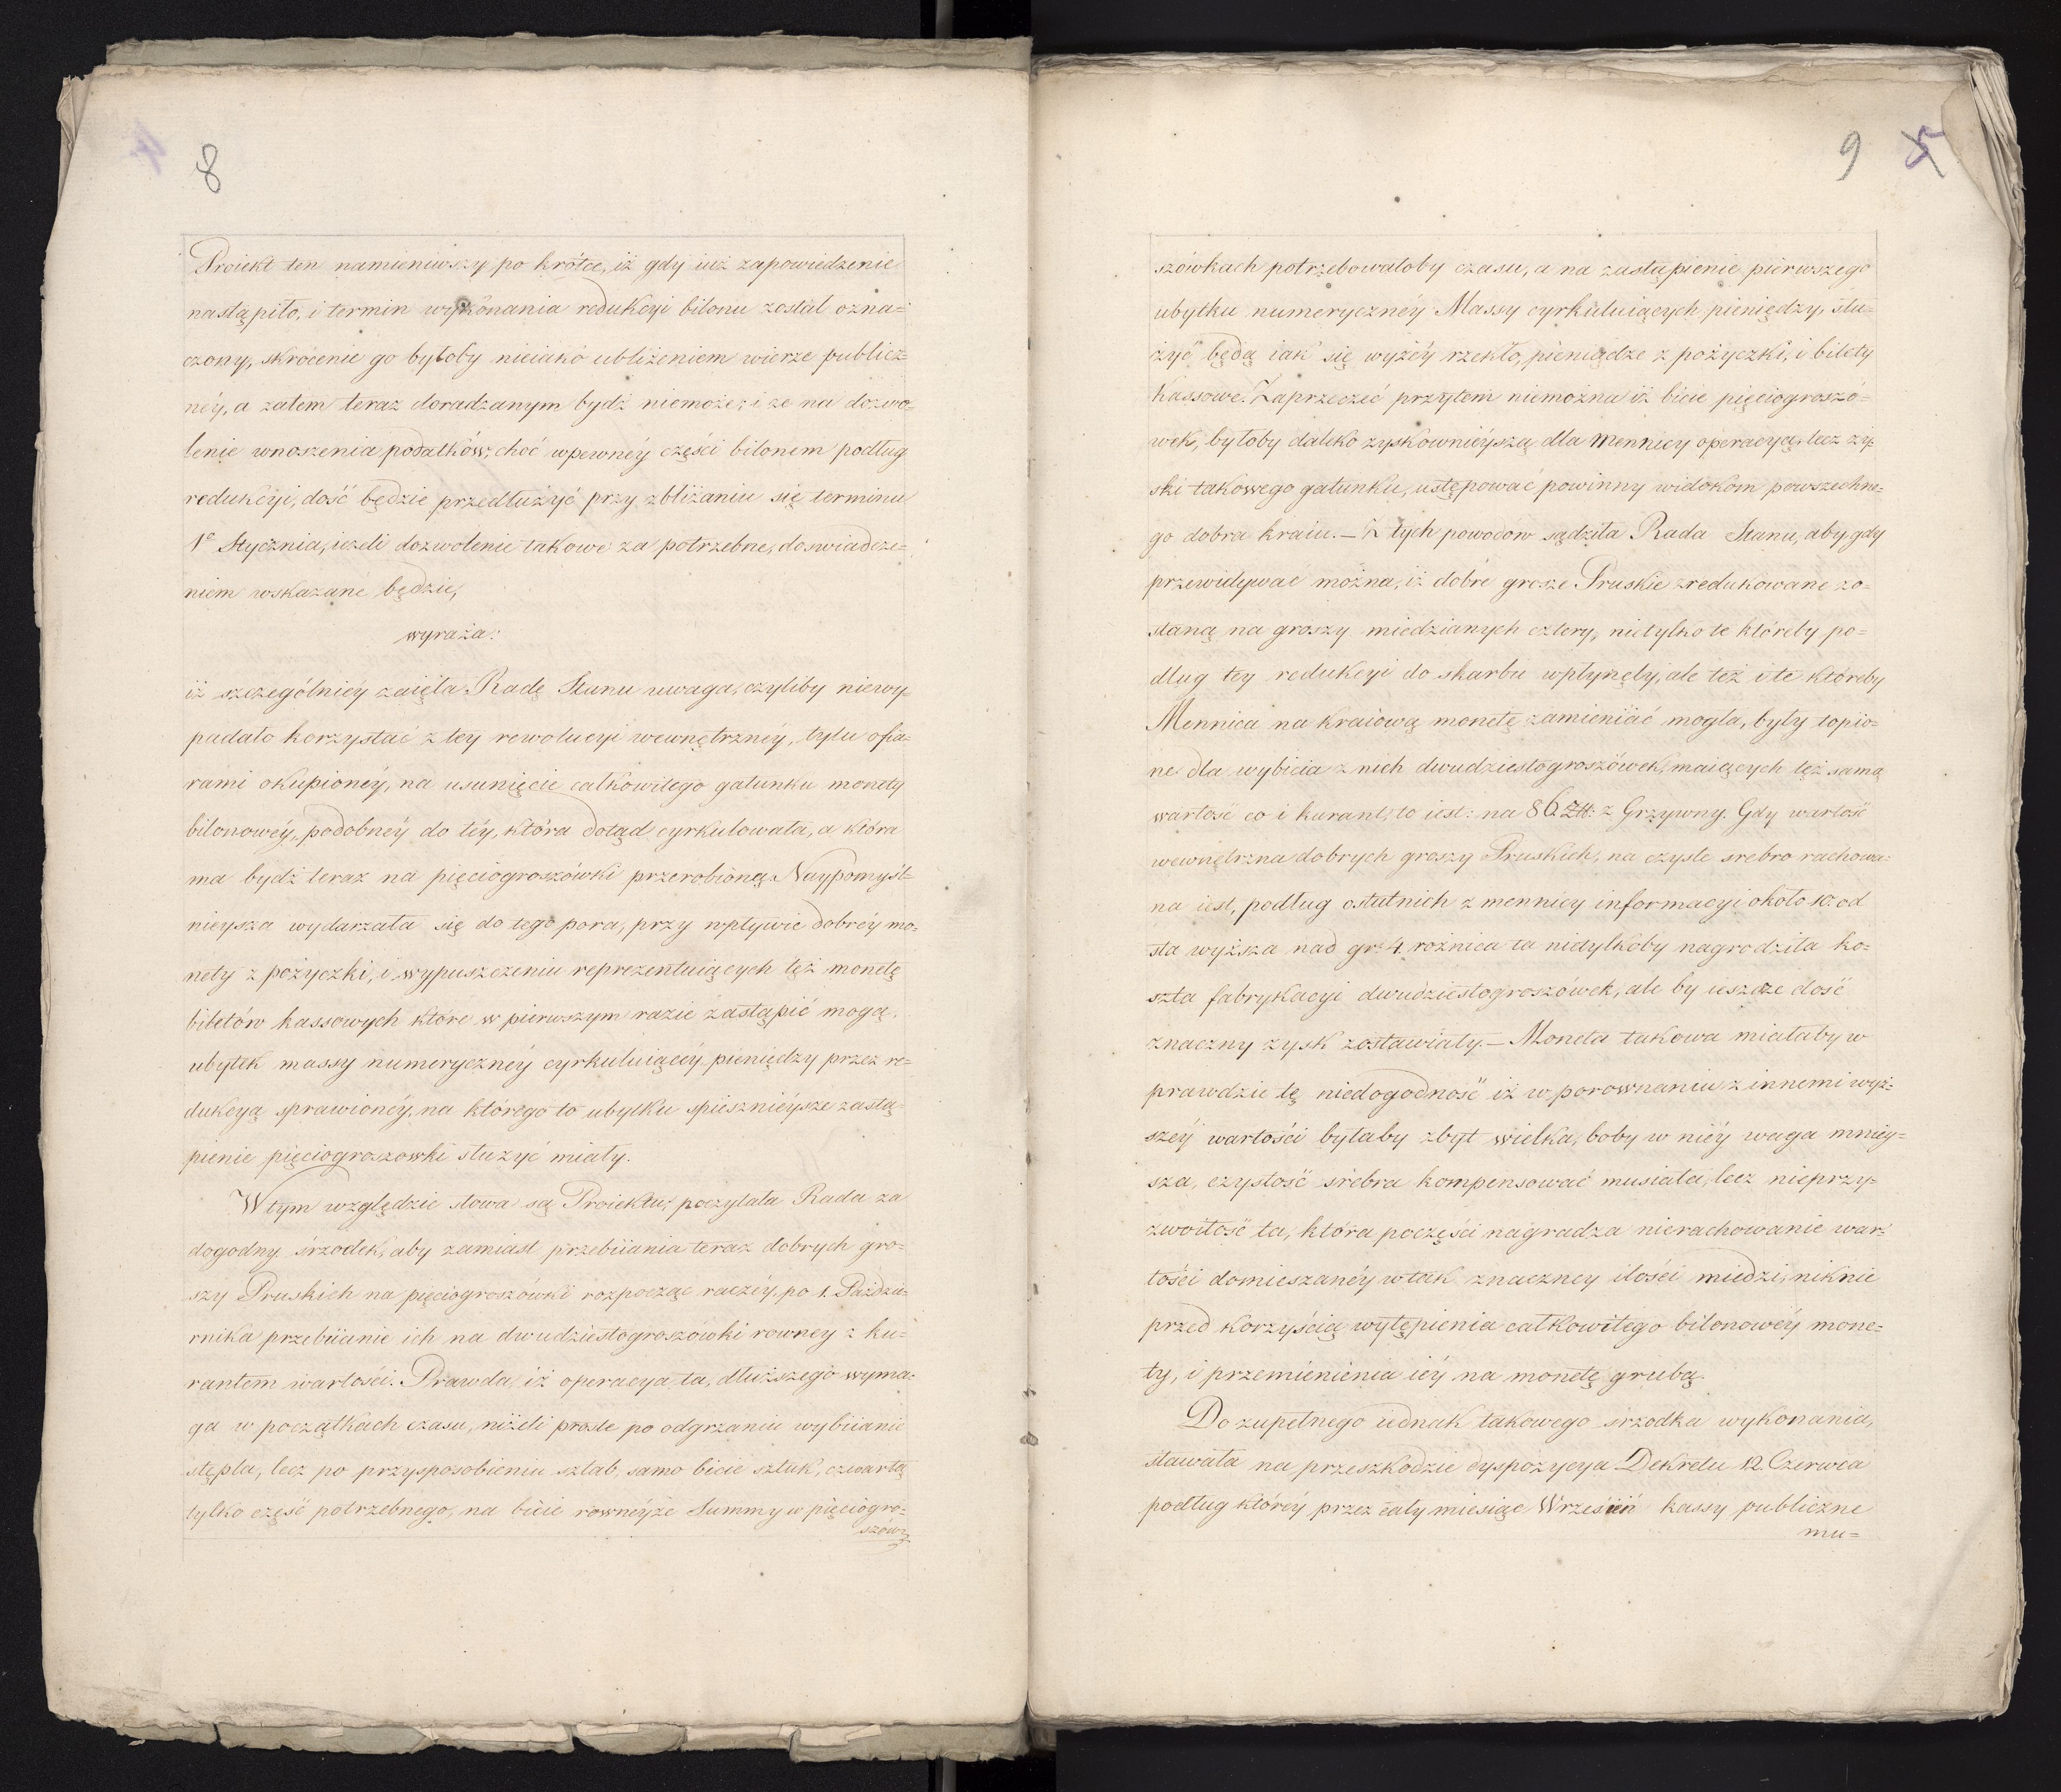 8
Proiekt ten namieniwszy po krótce, iż gdy iuż zapowiedzenie
nastąpiło, i termin wykonania redukcyi bilonu został ozna=
czony, skrócenie go byłoby nieiako ubliżeniem wierze publicz=
néy, a zatem teraz doradzanym bydź niemoże; i że na dozwo=
lenie wnoszenia podatków, choć w pewnéy części bilonem podług
redukcyi, dość będzie przedłużyć przy zbliżaniu się terminu
1º Stycznia, ieżeli dozwolenie takowe za potrzebne, doswiadcze=
niem wskazane będzie,
wyraża:
iż szczególniéy zaięła Radę Stanu uwaga, czyliby niewy=
padało korzystać z tey rewolucyi wewnętrznéy, tylu ofia=
rami okupionéy, na usunięcie całkowitego gatunku monety
bilonowéy, podobnéy do téy, która dotąd cyrkulowała, a która
ma bydź teraz na pięciogroszówki przerobioną. Naypomyśl=
nieysza wydarzała się do tego pora, przy wpływie dobréy mo=
nety z pożyczki, i wypuszczeniu reprezentuiących tęż monetę
biletów kassowych które w pierwszym razie zastąpić mogą,
ubytek massy numerycznéy cyrkuluiącéy pieniędzy przez re=
dukcyą sprawionéy, na którego to ubytku spieszniéysze zastą=
pienie pięciogroszowki służyć miały.
W tym względzie słowa są Proiektu: poczytała Rada za
dogodny śrzodek, aby zamiast przebiiania teraz dobrych gro=
szy Pruskich na pięciogroszówki rozpocząć raczéy, po 1. Paździe=
rnika przebiianie ich na dwudziestogroszówki rowney z ku=
rantem wartości. Prawda, iż operacya ta, dłuższego wyma=
ga w początkach czasu, niżeli proste po odgrzaniu wybiianie
stępla, lecz po przysposobieniu sztab, samo bicie sztuk, czwartą
tylko część potrzebnego, na bicie rownéyże Summy w pięciogro=
szów=
9 5
szówkach potrzebowałoby czasu, a na zastąpienie pierwszego
ubytku numerycznéy Massy cyrkuluiących pieniędzy, słu=
żyć będą iak się wyżéy rzekło, pieniądze z pożyczki, i bilety
Kassowe. Zaprzeczeć przytem niemożna iż bicie pięciogroszó=
wek, byłoby daleko zyskownieyszą dla Mennicy operacyą, lecz zy=
ski takowego gatunku, ustępować powinny widokom powszechne=
go dobra kraiu. — Z tych powodow sądziła Rada Stanu, aby gdy
przewidywać można, iż dobre grosze Pruskie zredukowane zo=
staną na groszy miedzianych cztery, nietylko te któreby po=
dług tey redukcyi do skarbu wpłynęły, ale też i te któreby
Mennica na kraiową monetę zamieniać mogła, były topio=
ne dla wybicia z nich dwudziestogroszówek, maiących tęż samą
wartość co i kurant, to iest: na 86 Złł: z Grzywny. Gdy wartość
wewnętrzna dobrych groszy Pruskich, na czyste srebro rachowa=
na iest, podług ostatnich z mennicy informacyi około 10. od
sta wyższa nad gr: 4. rożnica ta nietylkoby nagrodziła ko=
szta fabrykacyi dwudziestogroszówek, ale by ieszcze dość
znaczny zysk zostawiały. — Moneta takowa miałaby w
prawdzie tę niedogodność iż w porownaniu z innemi wyż=
széy wartości byłaby zbyt wielka, boby w niéy waga mniéy=
sza, czystość srebra kompensować musiała, lecz nieprzy=
zwoitość ta, która poczęści nagradza nierachowanie war=
tości domieszanéy w tak znaczney ilości miedzi, niknie
przed korzyścią wytępienia całkowitego bilonowéy mone=
ty, i przemienienia iéy na monetę grubą.
Do zupełnego iednak takowego śrzodka wykonania,
stawała na przeszkodzie dyspozycya Dekretu 12. Czerwca
podług któréy przez cały miesiąc Wrzesień kassy publiczne
mu=